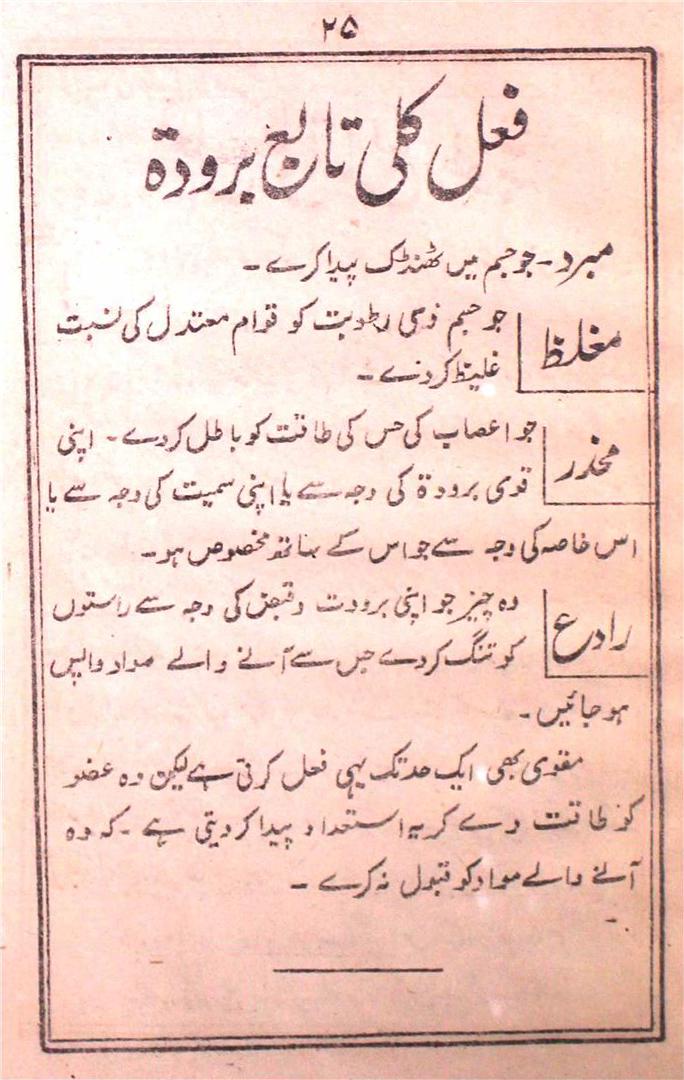 ۲۵
فعل کلی تابع برودۃ
مبرد - جو جسم میں ٹھنڈک پیدا کرے -
مغلظ
جو جسم ذی رطوبت کو قوام معتدل کی نسبت
غلیظ کر دے -
مخدر
جو اعصاب کی حس کی طاقت کو باطل کر دے - اپنی
قوی برودۃ کی وجہ سے یا اپنی سمیت کی وجہ سے یا
اس خاصہ کی وجہ سے جو اس کے ساتھ مخصوص ہو -
رادع
وہ چیز جو اپنی برودت و قبض کی وجہ سے راستوں
کو تنگ کر دے جس سے آنے والے مواد واپس
ہو جائیں -
مقوی بھی ایک حد تک یہی فعل کرتی ہے لیکن وہ عضو
کو طاقت دے کر یہ استعداد پیدا کر دیتی ہے - کہ وہ
آنے والے مواد کو قبول نہ کرے -